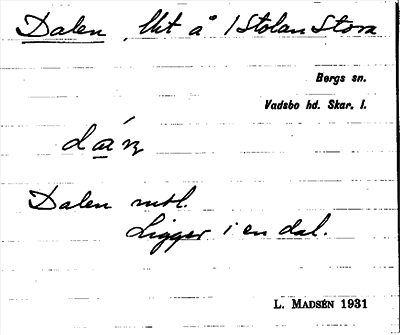 Dalen, lht å 1 Stolan Stora
Bergs sn.
Vadsbo hd. Skar. l.
Dalen
Ligger i en dal.
L. MADSÉN 1931